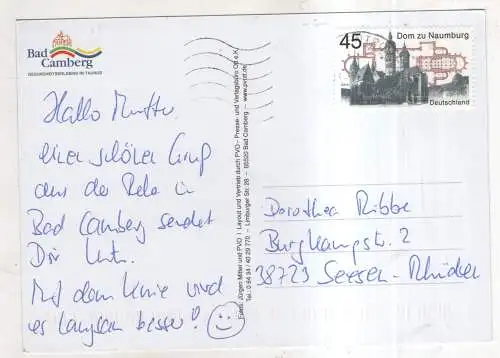 Bad
Camberg
GESUNDHEITSERLEBNIS IM TAUNUS
Hallo Mutti,
einen schönen Gruß
aus der Reha in
Bad Camberg sendet
Dir
Mit dem Knie wird
es langsam besser!
Fotos: Jürgen Mittel und PVD I Layout und Vertrieb durch PVD - Presse- und Verlagsbüro OHG e.K.
Tel.: 0 64 34 / 40 29 770 - Limburger Str. 28 - 65520 Bad Camberg - www.pvdff.de
45
Dom zu Naumburg
Deutschland
Dorothea Ribbe
Burgkampstr. 2
38723 Seesen - Rhüden